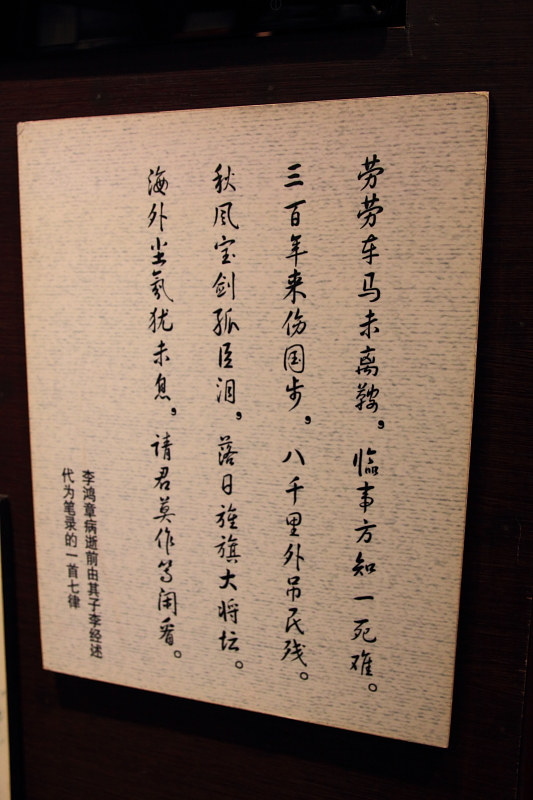 劳劳车马未离鞍，临事方知一死难。
三百年来伤国步，八千里外吊民残。
秋风宝剑孤臣泪，落日旌旗大将坛。
海外尘氛犹未息，请君莫作等闲看。
李鸿章病逝前由其子李经述
代为笔录的一首七律